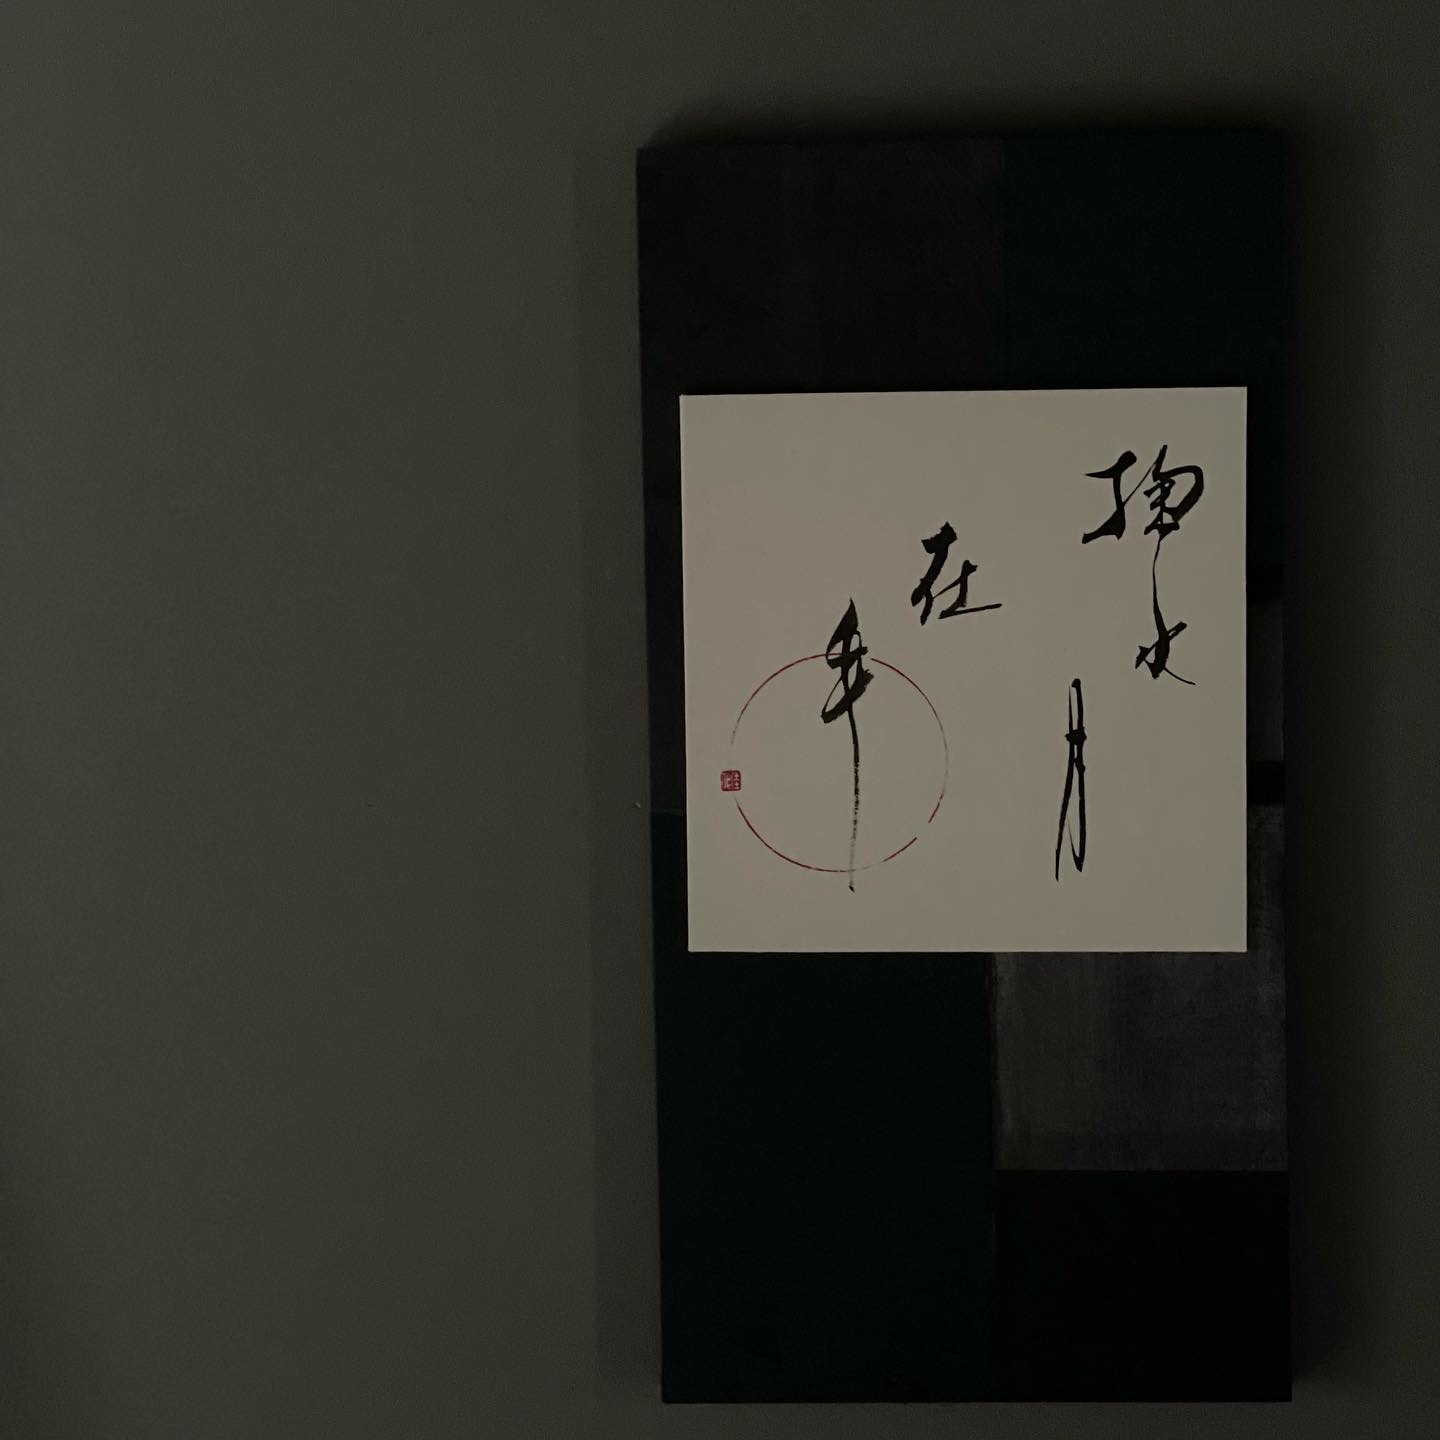 掬水
月
在
手